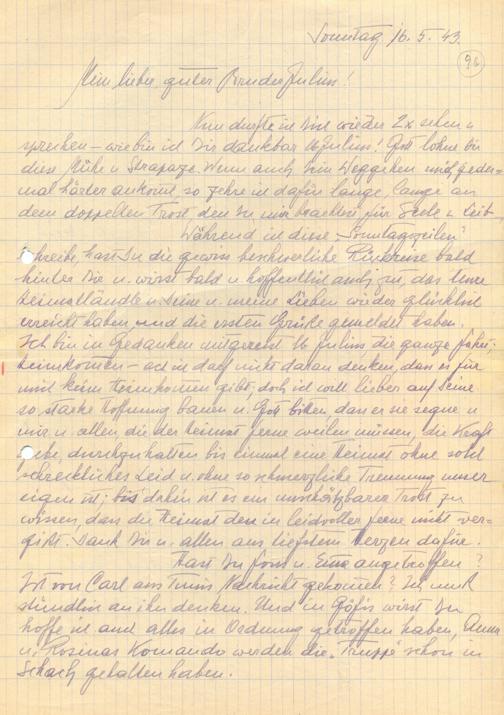 Sonntag 16. 5. 43.
96
Mein lieber, guter Bruder Julius!
Nun durfte ich Dich wieder 2x sehen u
sprechen – wie bin ich Dir dankbar lb Julius! Gott lohne Dir
diese Mühe u. Strapaze. Wenn auch Dein Weggehen mich jedes=
mal härter ankommt, so zehre ich dafür lange, lange an
dem doppelten Trost, den Du mir brachtest für Seele u. Leib.
Während ich diese „Sonntagszeilen"
schreibe hast Du die gewiss beschwerliche Rückreise bald
hinter Dir u. wirst bald u. hoffentlich auch gut, das liebe
Heimatländle u. Deine u. meine Lieben wieder glücklich
erreicht haben, und die ersten Grüße gemeldet haben.
Ich bin in Gedanken mitgereist lb Julius die ganze Fahrt,
heimkommen – ach ich darf nicht daran denken, dass es für
mich kein Heimkommen gibt, doch ich will lieber auf Deine
so starke Hoffnung bauen u. Gott bitten, dass er sie segne u
mir u. allen die der Heimat ferne weilen müssen, die Kraft
gebe, durchzuhalten bis einmal eine Heimat ohne solch
schreckliches Leid u. ohne so schmerzliche Trennung unser
eigen ist; bis dahin ist es ein unschätzbarer Trost zu
wissen, dass die Heimat den in leidvoller Ferne nicht ver-
gißt. Dank Dir u. allen aus tiefstem Herzen dafür.
Hast Du u. angetroffen?
Ist von Carl aus Tunis Nachricht gekommen? Ich muß
stündlich an ihn denken. Und in Göfis wirst Du
hoffe ich auch alles in Ordnung getroffen haben, Anna
u. Rosinas Komando werden die „Truppe" schon in
Schach gehalten haben.